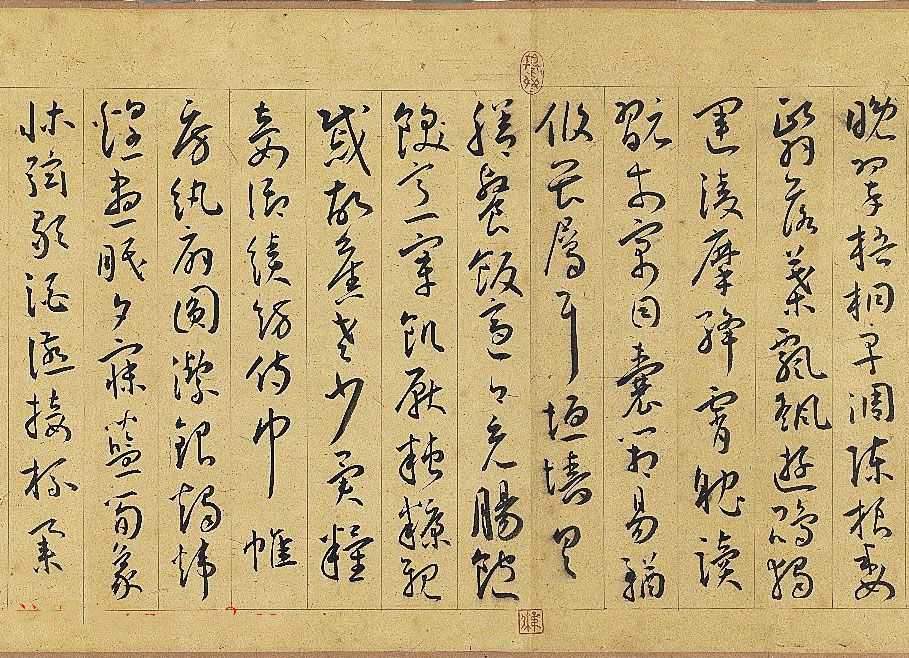 晚翠梧桐早凋陳根委
翳落葉飄颻遊鵾獨
運凌摩絳霄耽讀
翫市寓目囊箱易輶
攸畏屬耳垣墻具
膳餐飯適口充腸飽
飫烹宰飢厭糟糠親
戚故舊老少異糧
妾御績紡侍巾帷
房紈扇圓潔銀燭煒
煌晝眠夕寐藍筍象
牀弦歌酒讌接杯舉